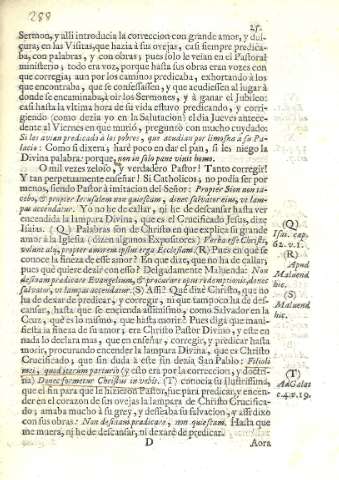 288
25.
Sermon, y alli introducia la correccion con grande amor, y dul-
çura; en las Visitas, que hazia à sus ovejas, casi siempre predica-
ba, con palabras, y con obras; pues solo le veian en el Pastoral
ministerio; todo era voz, porque hasta sus obras eran vozes con
que corregia; aun por los caminos predicaba, exhortando à los
que encontraba, que se confessassen, y que acudiessen al lugar à
donde se encaminaba, à oir los Sermones, y à ganar el Jubileo:
assi hasta la vltima hora de su vida estuvo predicando, y corri-
giendo (como dezia yo en la Salutacion) el dia Jueves antece-
dente al Viernes en que murió, preguntò con mucho cuydado:
Si les avian predicado à los pobres, que acudian por limosna à su Pa-
lacio: Como si dixera; harè poco en dar el pan, si les niego la
Divina palabra: porque, non in solo pane vivit homo.
O mil vezes zeloso, y verdadero Pastor! Tanto corregir!
Y tan perpetuamente enseñar! Si Catholicos; no podia ser por
menos, siendo Pastor à imitacion del Señor: Propter Sion non ta-
cebo, & propter Ierusalem non quiescam, donec salvator eius, ve lam-
pas accendatur. Yo no he de callar, ni he de descansar hasta ver
encendida la lampara Divina, que es el Crucificado Jesus, dize
Isaias. (Q) Palabras son de Christo en que explica su grande
amor à la Iglesia (dizen algunos Expositores) Verba esse Christi,
volunt alij, propter amorem ipsius erga Ecclesiam: (R) Pues en què se
conoce la fineza de esse amor? En que dize, que no ha de callar;
pues què quiere dezir con esso? Delgadamente Maluenda: Non
desistam prædicare Evangelium, & procurare opus redemptionis, donec
Salvator, vt lampas accendatur. (S) Assi! Que dize Christo, que no
ha de dexar de predicar, y corregir, ni que tampoco ha de des-
cansar, hasta que se encienda altissimo, como Salvador en la
Cruz, que es lo mismo, que hasta morir? Pues diga que mani-
fiesta la fineza de su amor; era Christo Pastor Divino, y este en
nada lo declara mas, que en enseñar, corregir, y predicar hasta
morir, procurando encender la lampara Divina, que es Christo
Crucificado; que sin duda à este fin dezia San Pablo: Filioli
mei, quos iterum parturio (y esto era por la correccion, y doctri-
na) Donec formetur Christus in vobis. (T) conocia su Ilustrissima,
que el fin para que le hizieron Pastor, fue para predicar, y encen-
der en el corazon de sus ovejas la lampara de Christo Crucifica-
do; amaba mucho à su grey, y desseaba su salvacion, y assi dixo
con sus obras: Non desistam prædicare, non quiescam. Hasta que
me muera, ni he de descansar, ni dexarè de predicar.
D
Aora
(Q)
Isai. cap.
62. v. 1.
(R)
Apud
Maluend.
hic.
(S)
Maluend.
hic.
(T)
Ad Galat.
c. 4. v. 19.